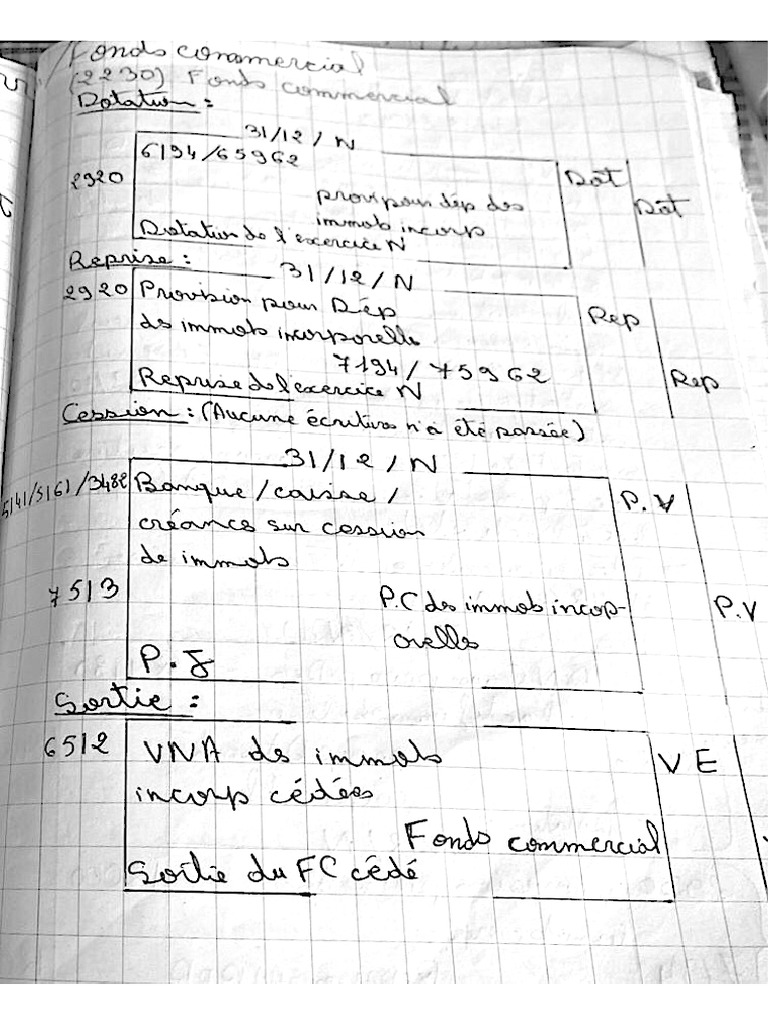 Fonds commercial
(2230) Fonds commercial
Dotation :
31/12/N
6194/65962 Dot
2920 provi pour dép des Dot
immob incorp
Dotation de l'exercice N
Reprise :
31/12/N
2920 Provision pour Dép Rep
des immob incorporelle
7194/75962 Rep
Reprise de l'exercice N
Cession : (Aucune écriture n'a été passée)
31/12/N
5141/5161/3482 Banque/caisse/ P.V
créances sur cession
de immob
7513 P.C des immob incorp- P.V
orelles
P.J
Sortie :
6512 VNA des immob VE
incorp cédées
Fonds commercial
Sortie du FC cédé